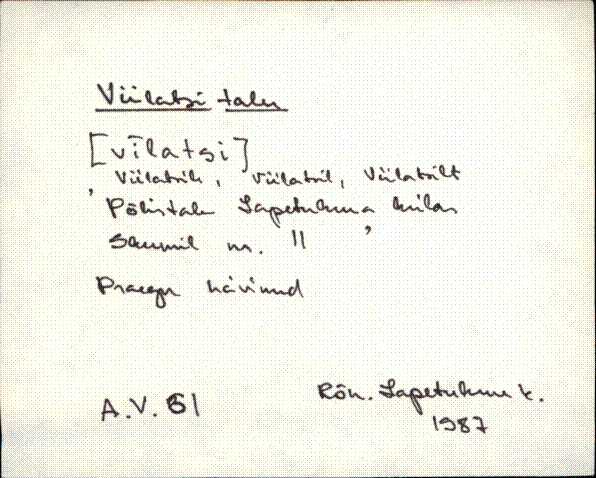 Viilatsi talu
[vīlatsi]
Viilatsile, Viilatsil, Viilatsilt
Põlistalu Lapetukme külas
skeemil nr. 11
Praegu hävinud
A.V. 61 Rõn. Lapetukme k.
1987